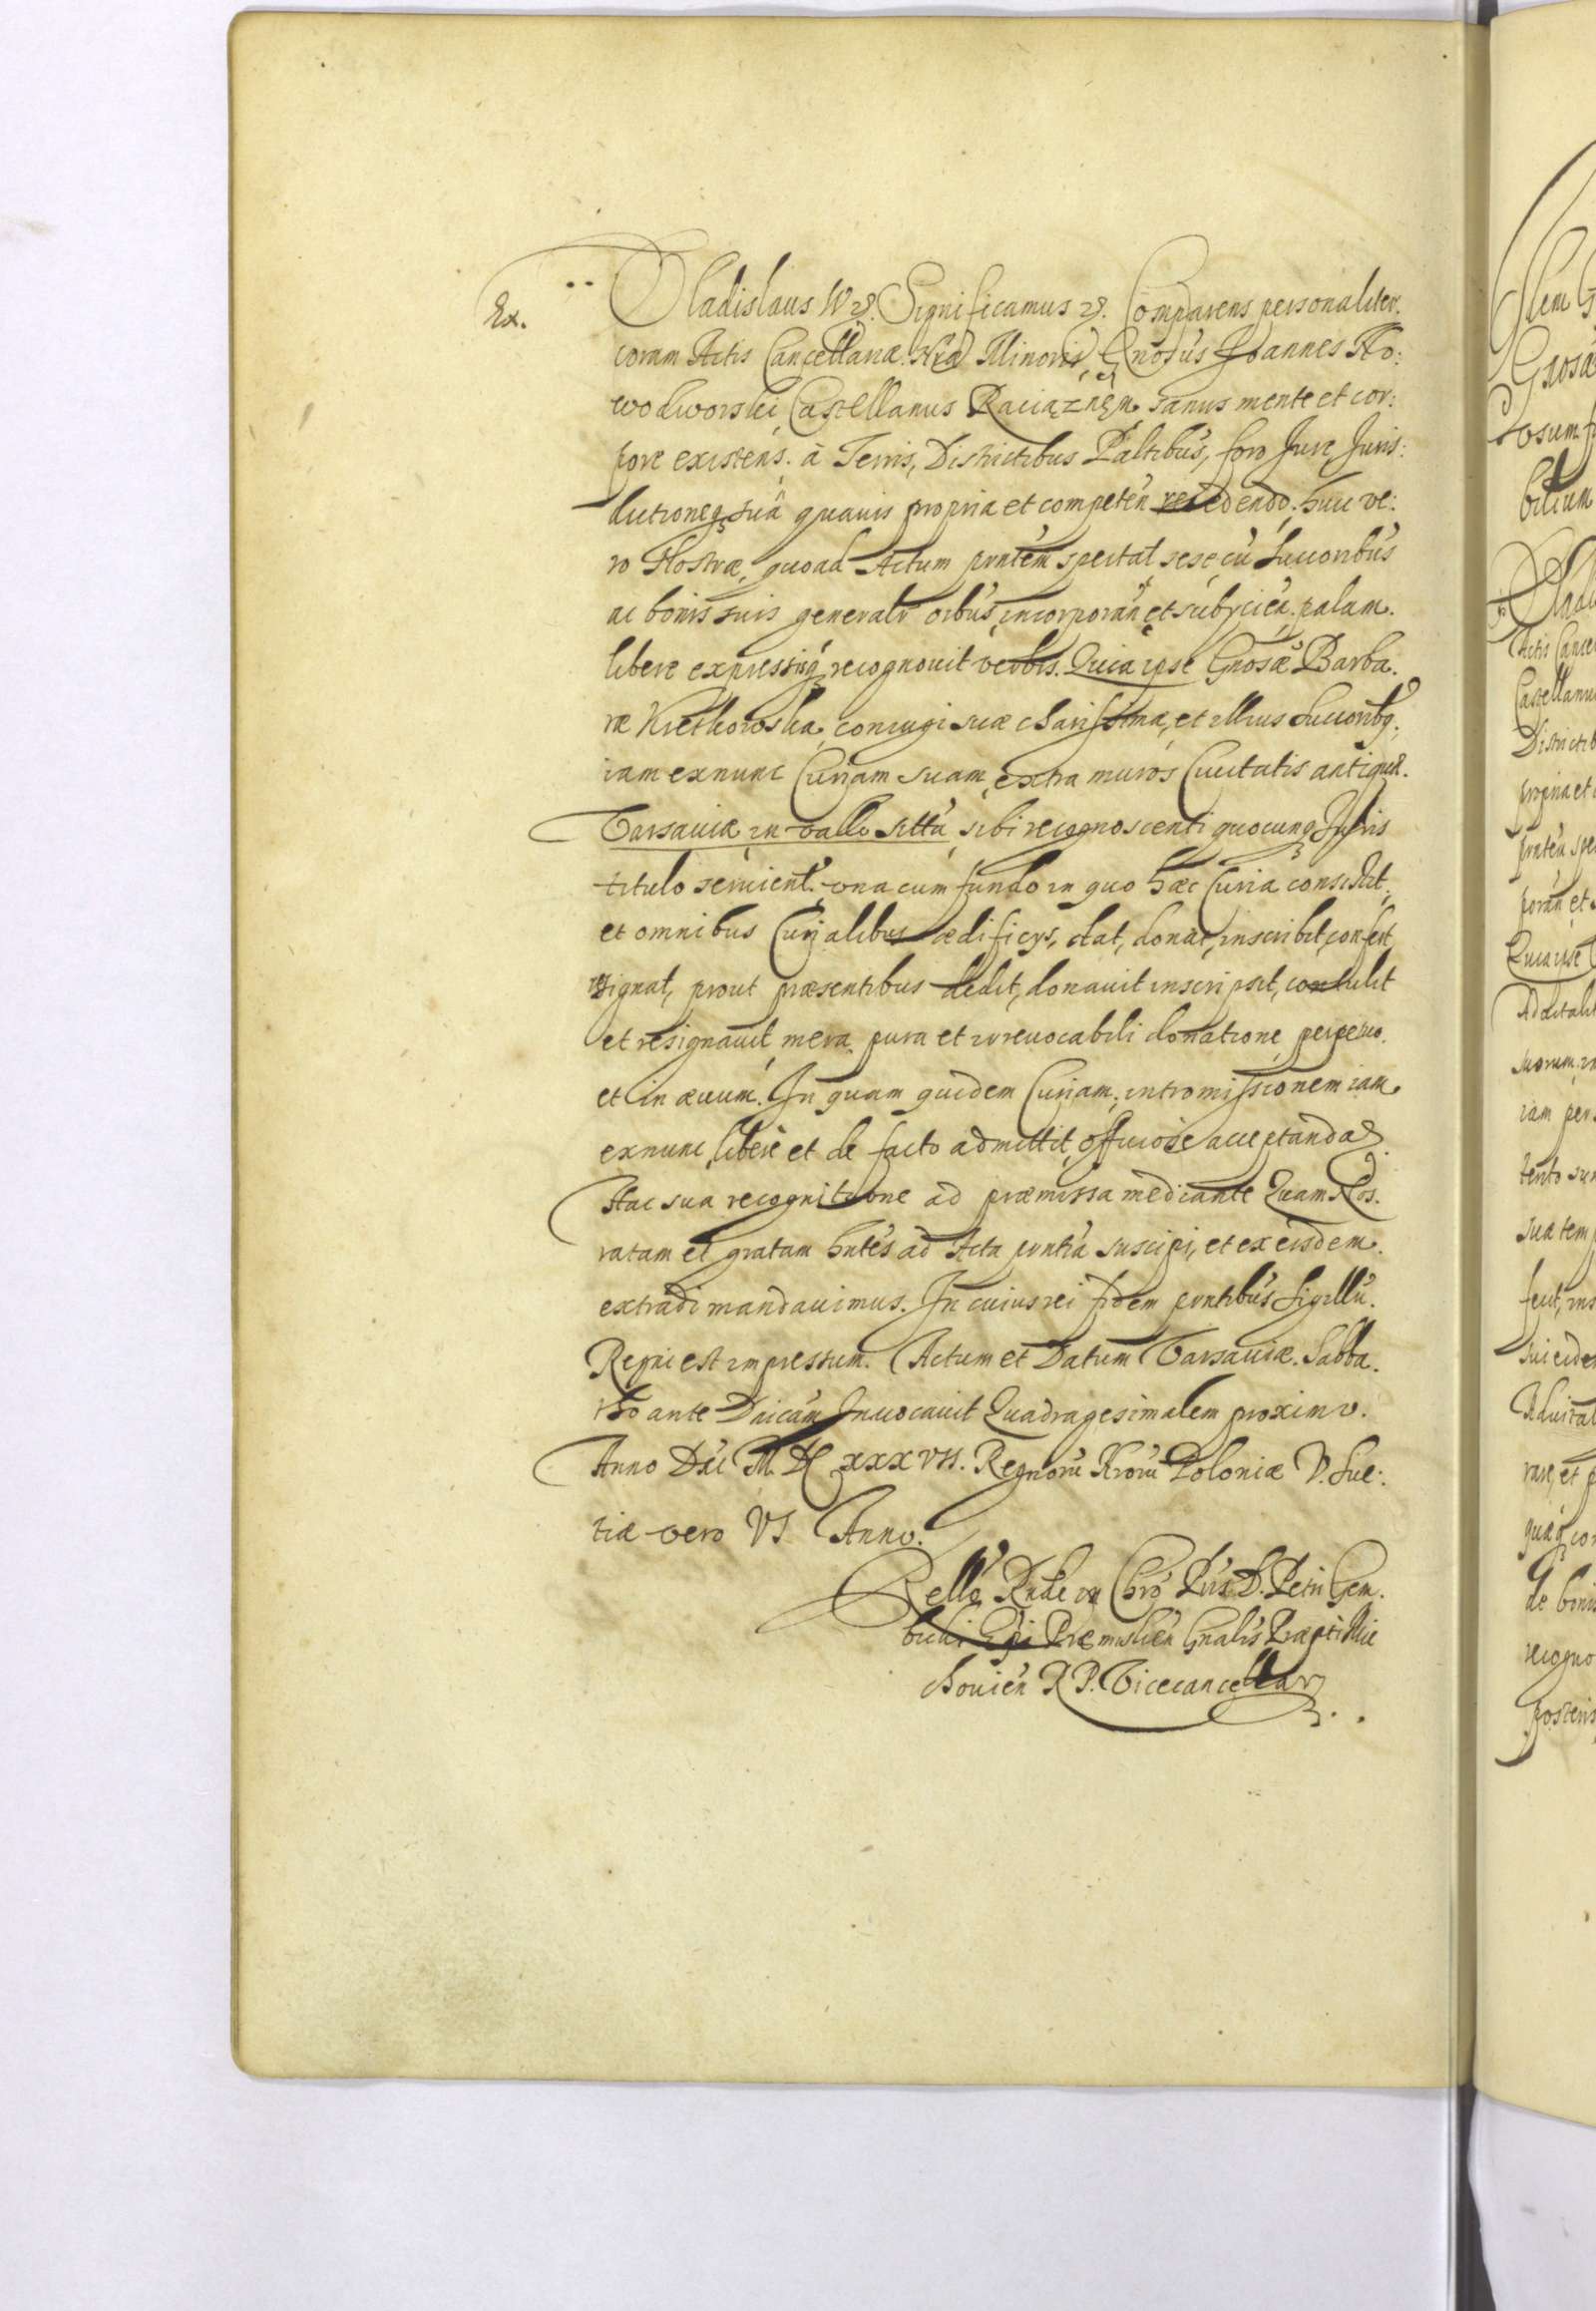 Ex.
Vladislaus IV etc. Significamus etc. Comparens personaliter
coram Actis Cancellariæ Nræ Minoris, Gnosus Joannes No:
wodworski Castellanus Raciąznęn, sanus mente et cor:
pore existens. à Terris, Districtibus Paltibus, foro Jure Juris:
dictioneq suâ quavis propria et competen recedendo, huic ve:
ro Nostræ, quoad Actum prntem spectat sese cũ Succoribus
ac bonis suis generalr oibus incorporan et subÿcien. palam
libere expressisq recognovit verbis. Quia ipse Gnosæ Barba
ræ Kretkowska coniugi suæ charissimæ, et illius Succoribq,
iam exnunc Curiam suam extra muros Civitatis antiquæ
Varsaviæ in vallo sittã, sibi recognoscenti quocunq Juris
titulo servient. una cum fundo in quo hæc Curia consistit,
et omnibus Curialibus ædificÿs, dat, donat, inscribit, confert
signat, prout præsentibus dedit, donavit inscripsit, contulit
et resignavit mera pura et irrevocabili donatione perpetuo
et in ævum. In quam quidem Curiam, intromissionem iam
exnunc libere et de facto admittit, officiose acceptandã.
Hac sua recognitione ad præmissa mediante Quam Nos
ratam et gratam hntes ad Acta prntia suscipi, et ex eisdem
extradi mandavimus. In cuius rei fidem prntibus Sigillũ
Regni est impressum. Actum et Datum Varsaviæ. Sabba
tho ante Dnicam Invocavit Quadragesimalem proximo.
Anno Dni M. DC XXXVII. Regnorũ Nrorũ Poloniæ V. Sue:
tiæ vero VI Anno.
Rello Rndi in Chro Pris D. Petri Gem
bicki Epi Premislien Gnalis Præpti Mie
chovien R P. Vicecancellar